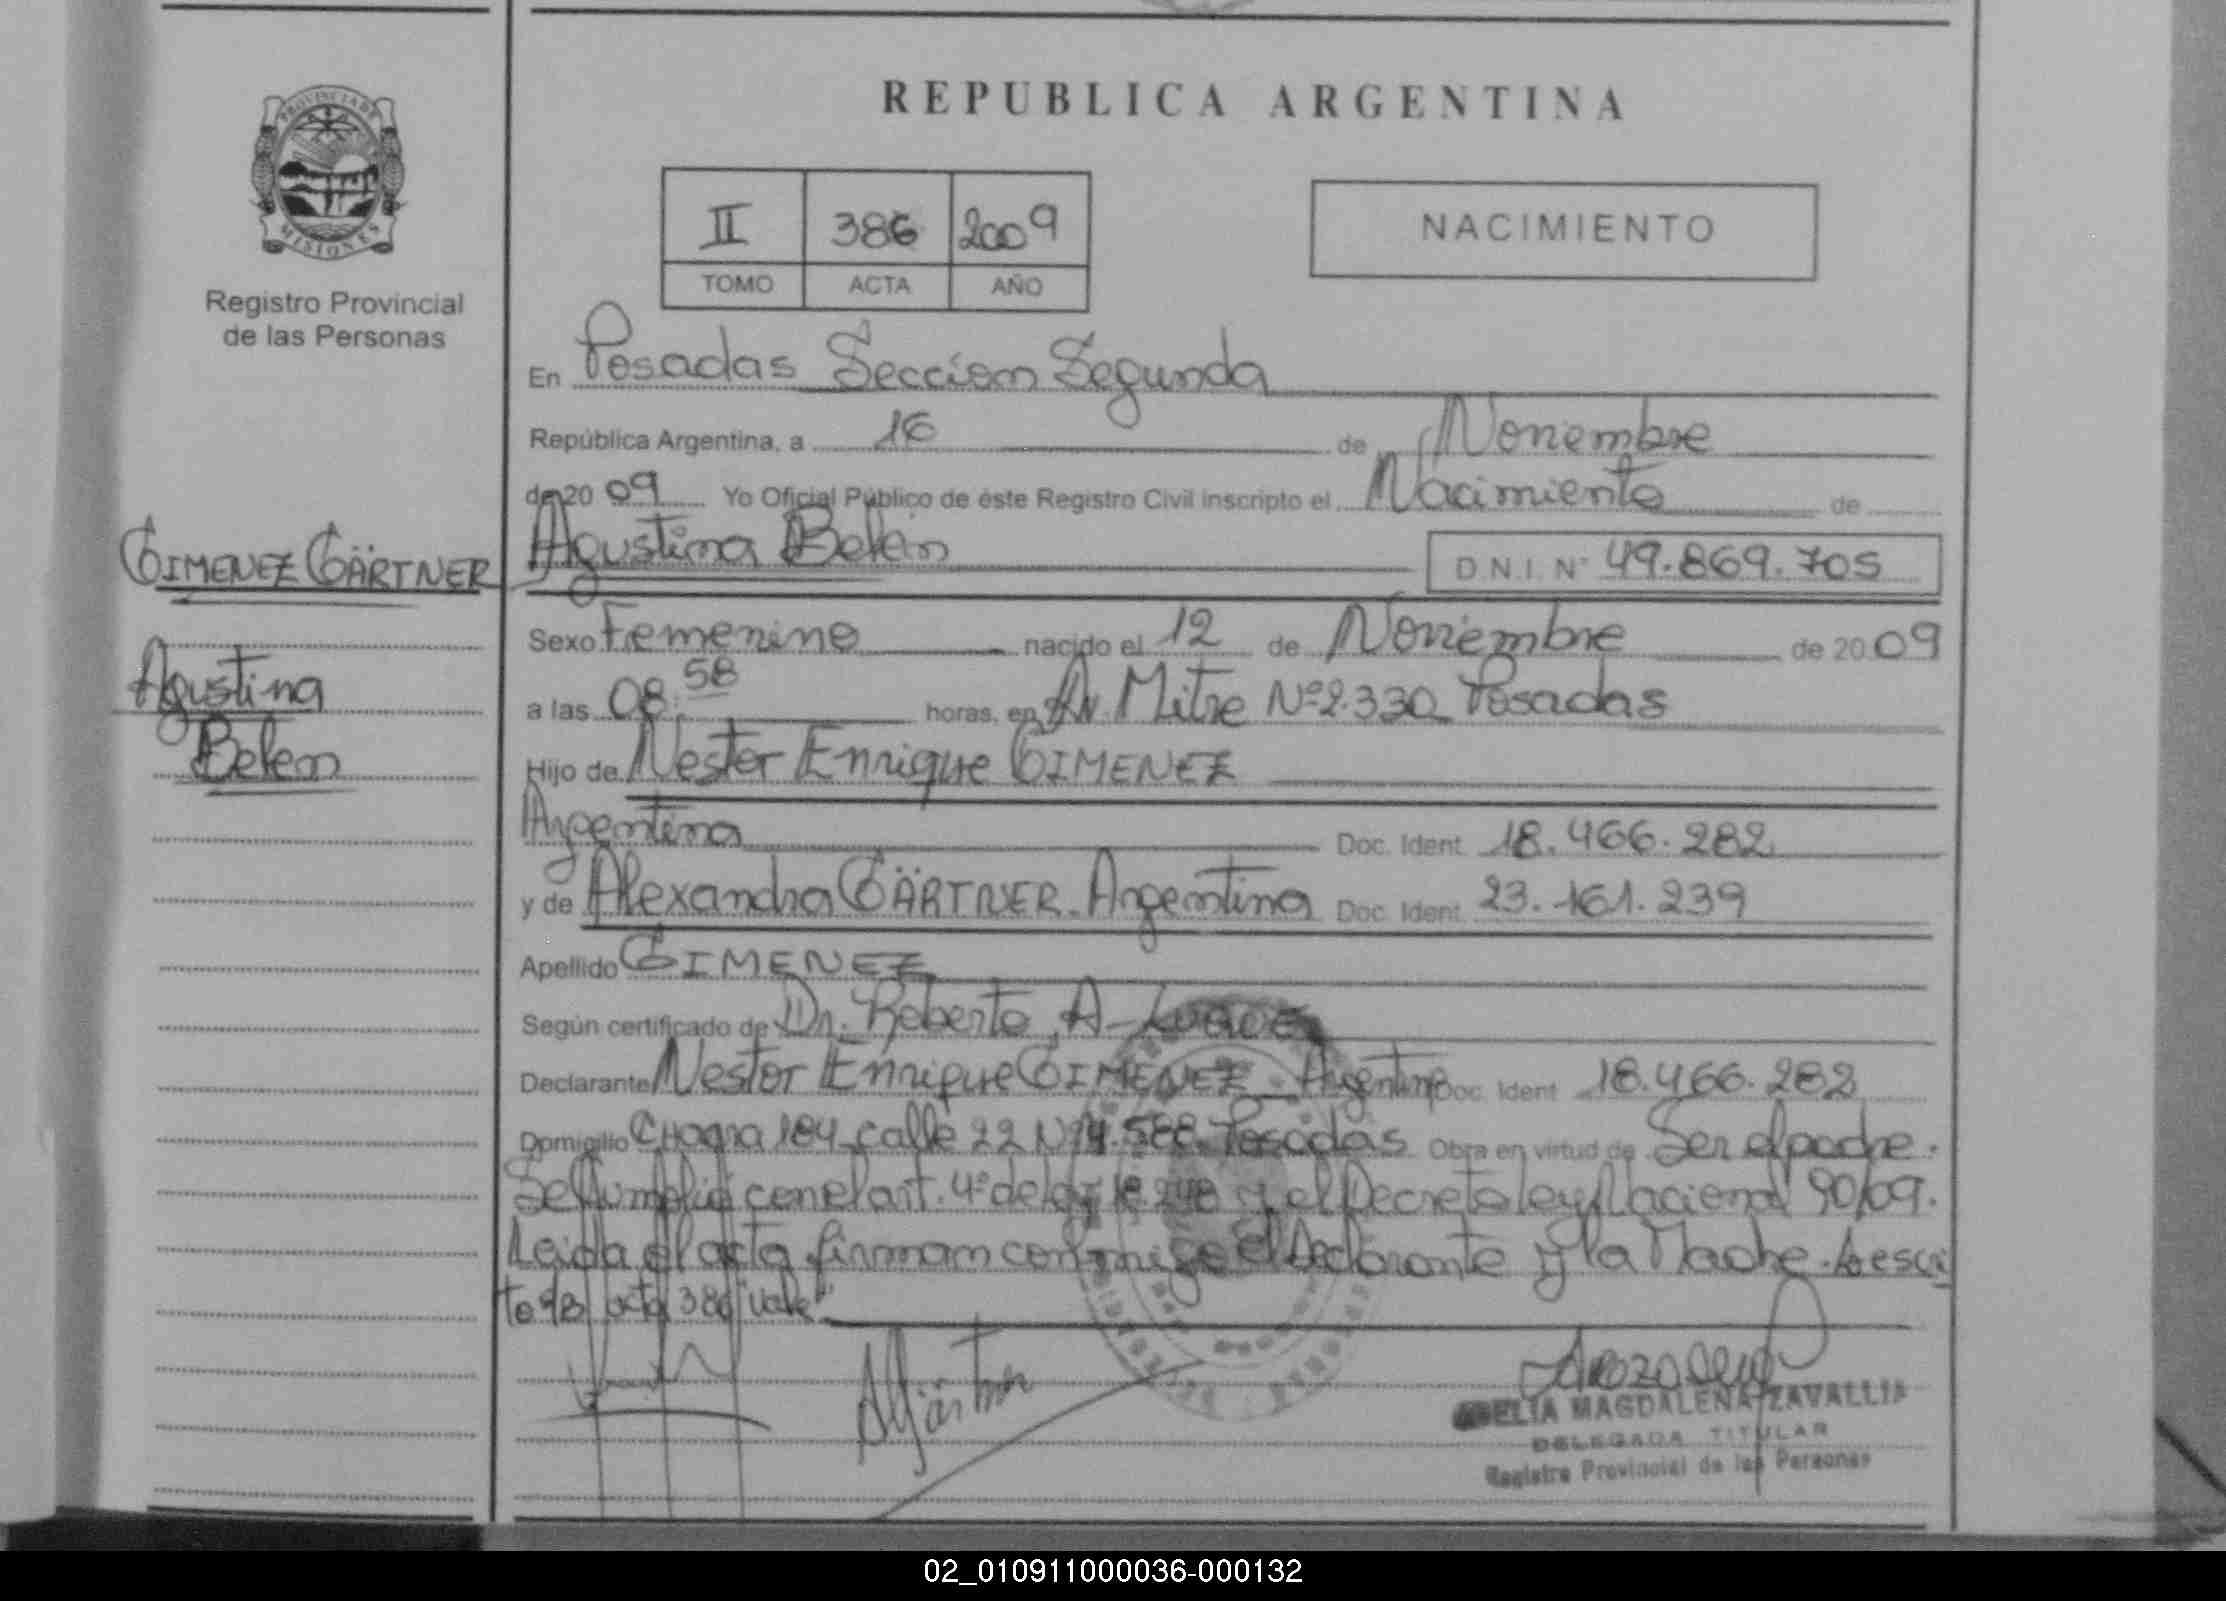 REPUBLICA ARGENTINA
PROVINCIA DE
MISIONES
Registro Provincial
de las Personas
II 386 2009
TOMO ACTA AÑO
NACIMIENTO
En Posadas Seccion Segunda
República Argentina, a 16 de Noviembre
de 20 09 Yo Oficial Público de éste Registro Civil inscripto el Nacimiento de
GIMENEZ GÄRTNER Agustina Belén D.N.I. Nº 49.869.705
Agustina
Belen
Sexo Femenino nacido el 12 de Noviembre de 20 09
a las 08:58 horas, en Av. Mitre Nº 2.330 Posadas
Hijo de Nestor Enrique GIMENEZ
Argentina Doc. Ident. 18.466.282
y de Alexandra GÄRTNER. Argentina Doc. Ident. 23.161.239
Apellido GIMENEZ
Según certificado de Dr. Roberto A.
Declarante Nestor Enrique GIMENEZ Argentino Doc. Ident 18.466.282
Domicilio Chacra 184 calle 22 Nº 4.588 Posadas Obra en virtud de Ser el padre.
Se cumplió con el art. 4º de ley 18.248 y el Decreto ley Nacional 90/09.
Leida el acta firman conmigo el Declarante y la Madre. Lo escri
to S/B acta 386 "Vale"
AGärtner
DELIA MAGDALENA ZAVALLIA
DELEGADA TITULAR
Registro Provincial de las Personas
02_010911000036-000132